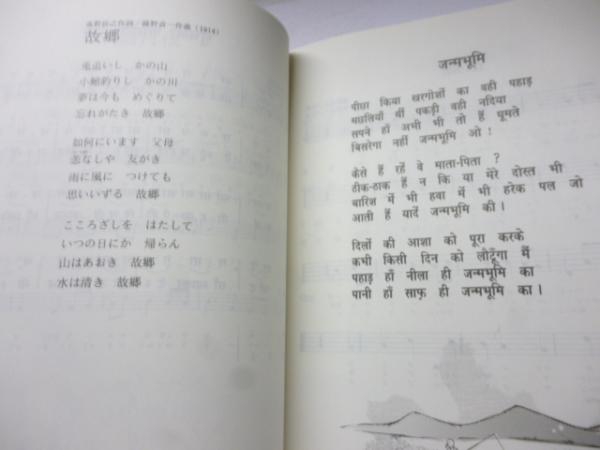 高野辰之作詞/岡野貞一作曲(1914)
故郷
兎追いし かの山
小鮒釣りし かの川
夢は今も めぐりて
忘れがたき 故郷
如何にいます 父母
恙なしや 友がき
雨に風に つけても
思いいずる 故郷
こころざしを はたして
いつの日にか 帰らん
山はあおき 故郷
水は清き 故郷
जन्मभूमि
पीछा किया खरगोशों का वही पहाड़
मछलियाँ थीं पकड़ी वही नदिया
सपने हाँ अभी भी तो हैं घूमते
बिसरेगा नहीं जन्मभूमि ओ !
कैसे हैं रहें वे माता-पिता ?
ठीक-ठाक हैं न कि या मेरे दोस्त भी
बारिश में भी हवा में भी हरेक पल जो
आती हैं यादें जन्मभूमि की।
दिलों की आशा को पूरा करके
कभी किसी दिन को लौटूँगा मैं
पहाड़ हाँ नीला ही जन्मभूमि का
पानी हाँ साफ़ ही जन्मभूमि का।